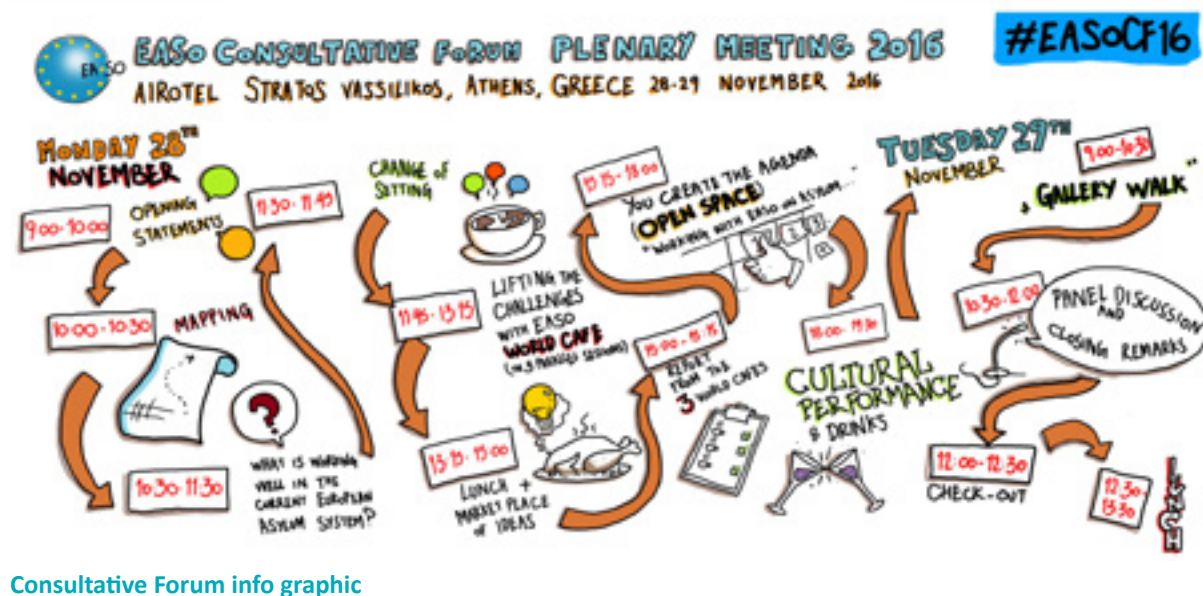 EASO CONSULTATIVE FORUM PLENARY MEETING 2016
#EASOCF16
AIROTEL STRATOS VASSILIKOS, ATHENS, GREECE 28-29 NOVEMBER 2016
EASO
MONDAY 28TH
NOVEMBER
9:00-10:00
OPENING
STATEMENTS
10:00-10:30
MAPPING
10:30-11:30
?
WHAT IS WORKING
WELL IN THE
CURRENT EUROPEAN
ASYLUM SYSTEM?
11:30-11:45
CHANGE of
SETTING
11:45-13:15
LIFTING THE
CHALLENGES
WITH EASO
WORLD CAFE
(IN 3 PARALLEL SESSIONS)
13:15-15:00
LUNCH +
MARKET PLACE
of IDEAS
15:00-15:15
REPORT
FROM THE
3 WORLD CAFES
15:15-18:00
YOU CREATE THE AGENDA
(OPEN SPACE)
"WORKING WITH EASO ON ASYLUM..."
CULTURAL
PERFORMANCE
& DRINKS
TUESDAY 29TH
NOVEMBER
9:00-10:30
GALLERY WALK
10:30-12:00
PANEL DISCUSSION
AND
CLOSING REMARKS
12:00-12:30
CHECK-OUT
12:30-
13:30
LUNCH
Consultative Forum info graphic